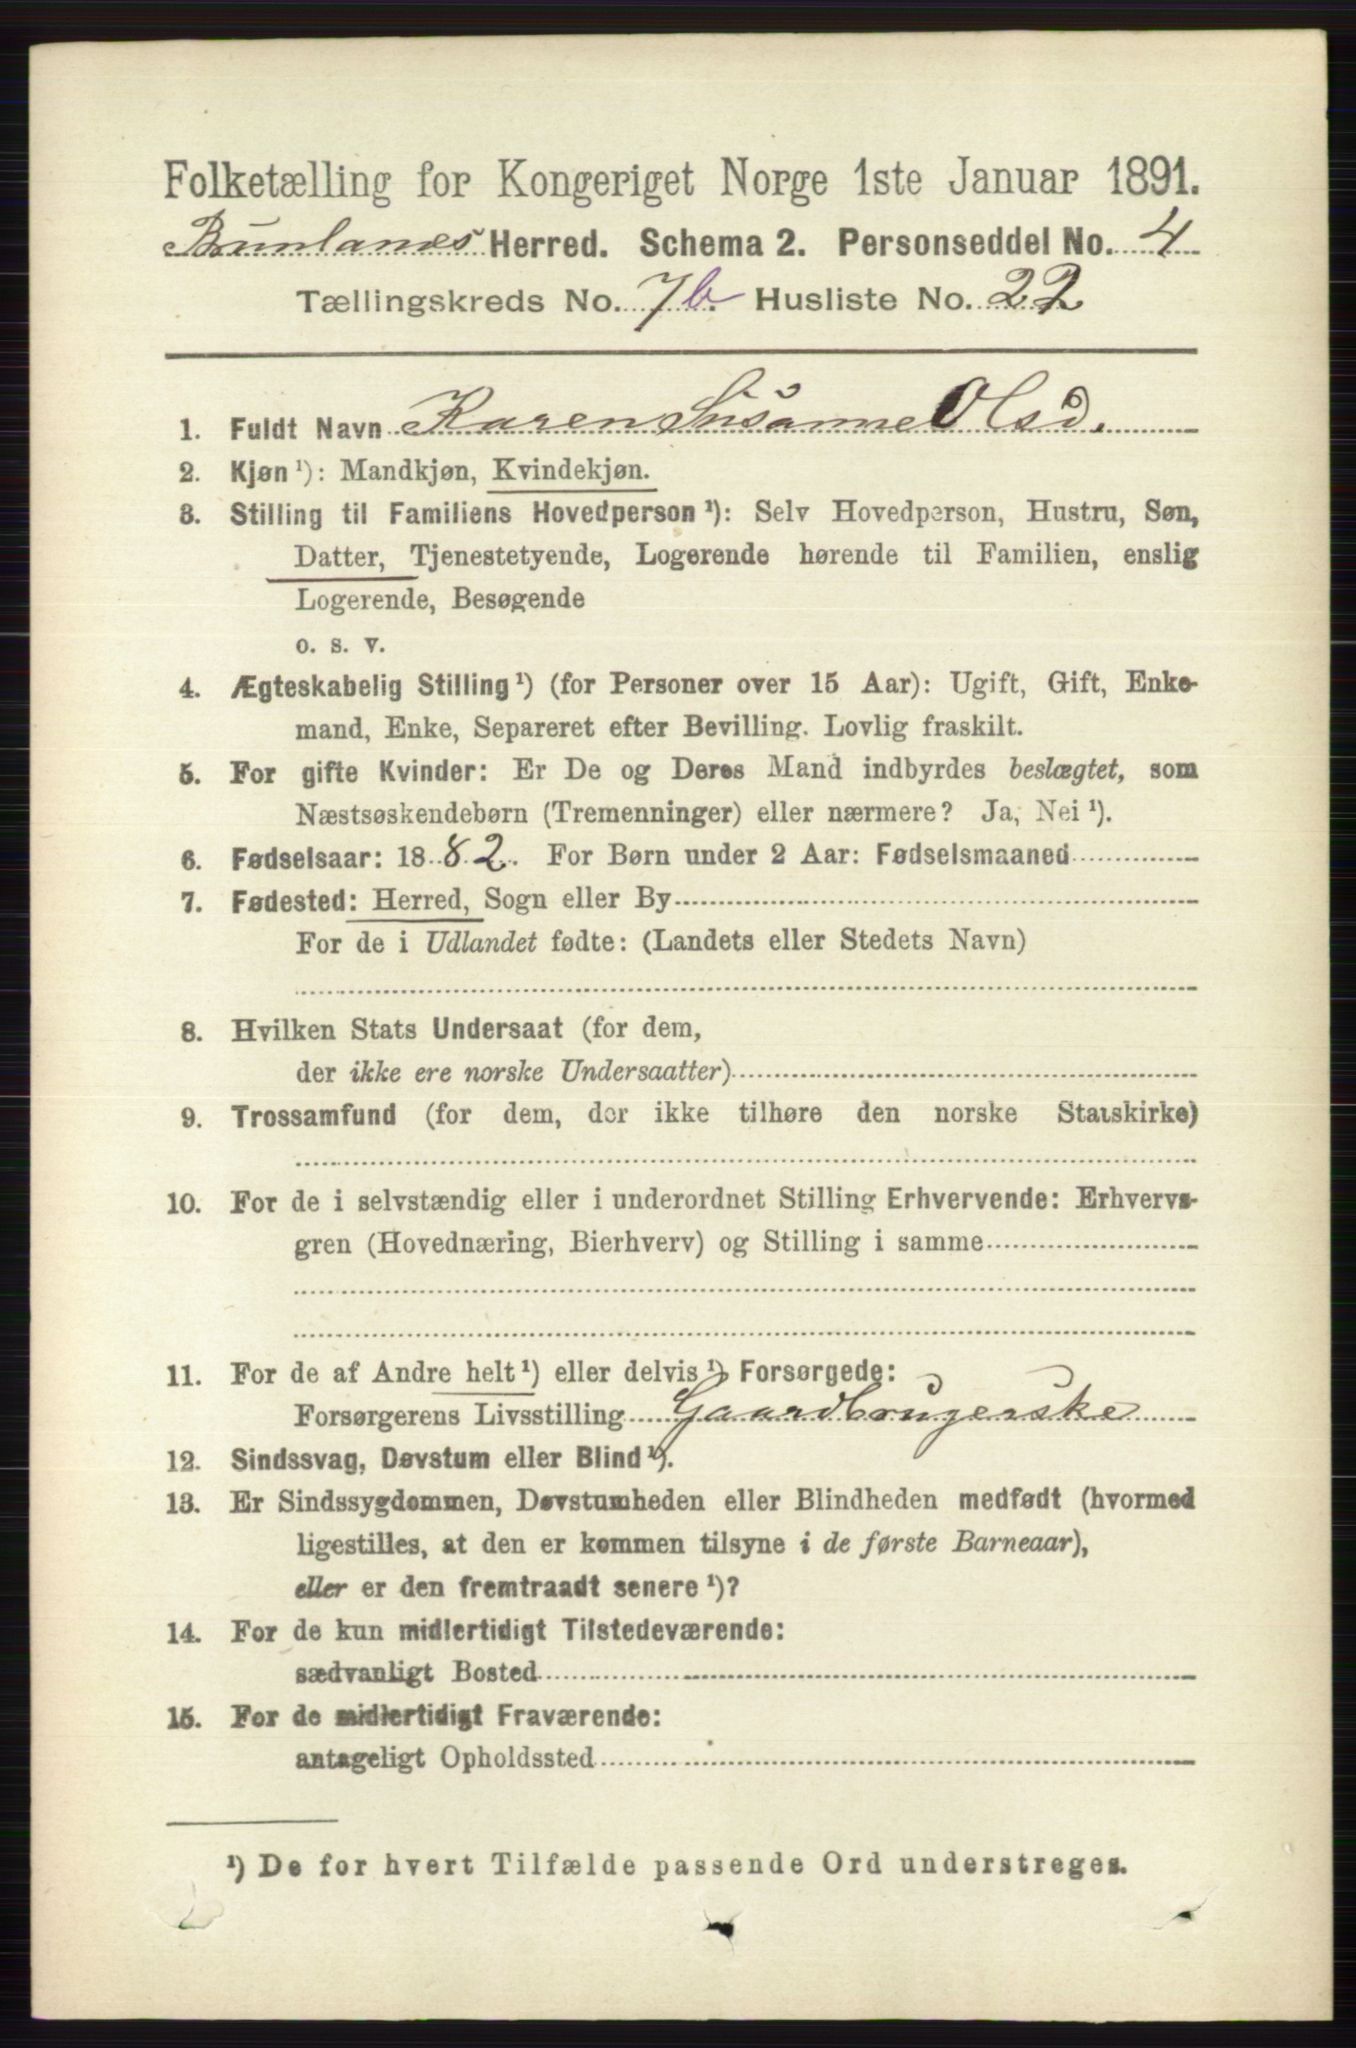 Folketælling for Kongeriget Norge 1ste Januar 1891.
Brunlanes Herred. Schema 2. Personseddel No. 4
Tællingskreds No. 7b. Husliste No. 22
1. Fuldt Navn Karen Susanne Olsd.
2. Kjøn¹): Mandkjøn, Kvindekjøn.
3. Stilling til Familiens Hovedperson¹): Selv Hovedperson, Hustru, Søn,
Datter, Tjenestetyende, Logerende hørende til Familien, enslig
Logerende, Besøgende
o. s. v.
4. Ægteskabelig Stilling¹) (for Personer over 15 Aar): Ugift, Gift, Enke-
mand, Enke, Separeret efter Bevilling. Lovlig fraskilt.
5. For gifte Kvinder: Er De og Deres Mand indbyrdes beslægtet, som
Næstsøskendebørn (Tremenninger) eller nærmere? Ja, Nei¹).
6. Fødselsaar: 1882. For Børn under 2 Aar: Fødselsmaaned
7. Fødested: Herred, Sogn eller By
For de i Udlandet fødte: (Landets eller Stedets Navn)
8. Hvilken Stats Undersaat (for dem,
der ikke ere norske Undersaatter)
9. Trossamfund (for dem, der ikke tilhøre den norske Statskirke)
10. For de i selvstændig eller i underordnet Stilling Erhvervende: Erhvervs-
gren (Hovednæring, Bierhverv) og Stilling i samme
11. For de af Andre helt¹) eller delvis¹) Forsørgede:
Forsørgerens Livsstilling Gaardbrugerske
12. Sindssvag, Døvstum eller Blind¹).
13. Er Sindssygdommen, Døvstumheden eller Blindheden medfødt (hvormed
ligestilles, at den er kommen tilsyne i de første Barneaar),
eller er den fremtraadt senere¹)?
14. For de kun midlertidigt Tilstedeværende:
sædvanligt Bosted
15. For de midlertidigt Fraværende:
antageligt Opholdssted
¹) De for hvert Tilfælde passende Ord understreges.